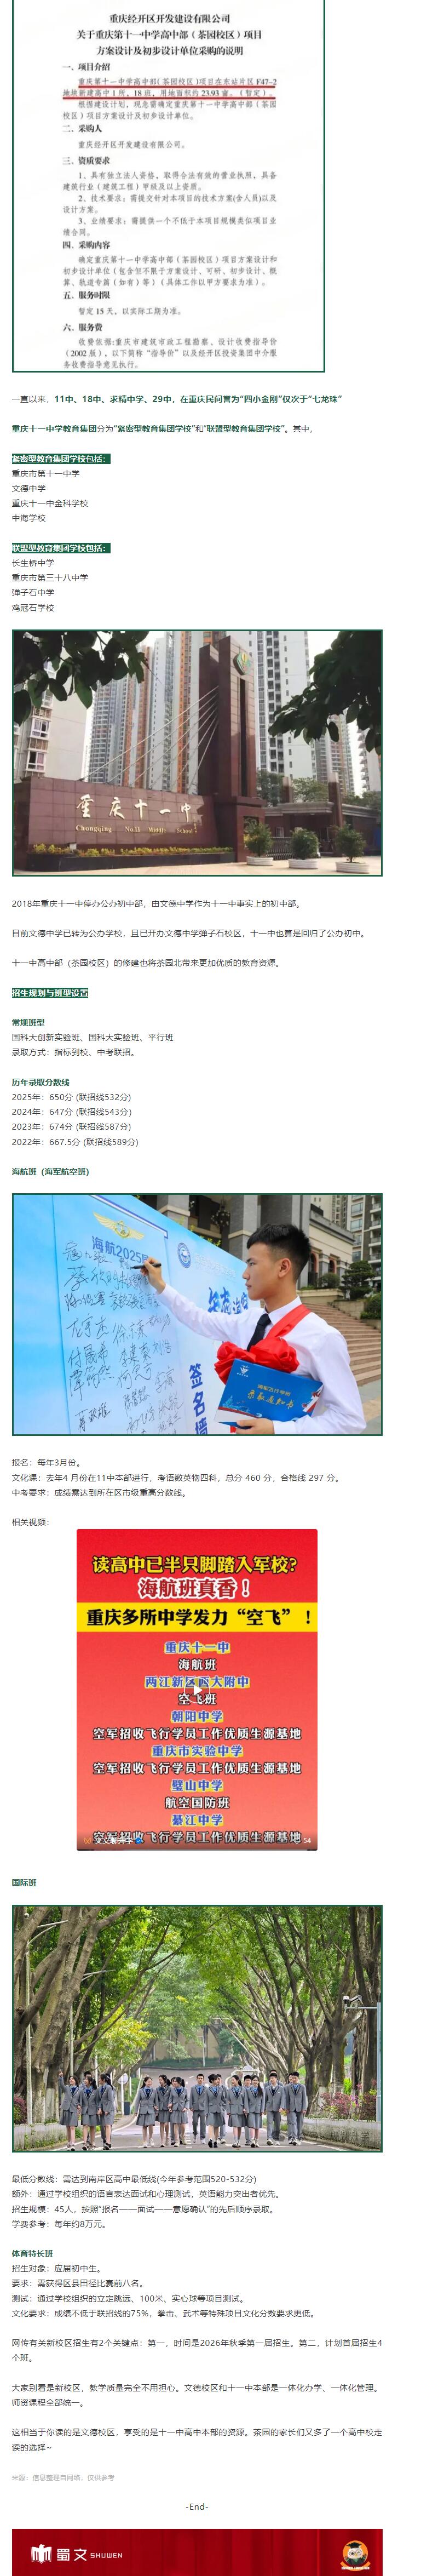 重庆经开区开发建设有限公司
关于重庆第十一中学高中部（茶园校区）项目
方案设计及初步设计单位采购的说明
一、项目介绍
重庆第十一中学高中部（茶园校区）项目在东站片区 F47-2
地块新建高中 1 所，18 班，用地面积约 23.93 亩。（暂定）。
根据建设计划，现急需确定重庆第十一中学高中部（茶园
校区）项目方案设计及初步设计单位。
二、采购人
重庆经开区开发建设有限公司。
三、资质要求
1、具有独立法人资格，取得合法有效的营业执照，具备
建筑行业（建筑工程）甲级及以上资质。
2、技术要求：需提交针对本项目的技术方案(含人员)以及
设计方案。
3、业绩要求：需提供一个不低于本项目规模类似项目业
绩合同。
四、采购内容
确定重庆第十一中学高中部（茶园校区）项目方案设计和
初步设计单位（包含但不限于方案设计、可研、初步设计、概
算、轨道专篇（如有）等）（具体工作以甲方要求为准）。
五、服务时限
暂定 15 天，以实际工期为准。
六、服务费
收费依据:重庆市建筑市政工程勘察、设计收费指导价
（2002 版），以下简称“指导价”以及经开区投资集团中介服
务收费指导意见执行。
一直以来，11中、18中、求精中学、29中，在重庆民间誉为“四小金刚”仅次于“七龙珠”
重庆十一中学教育集团分为“紧密型教育集团学校”和“联盟型教育集团学校”。其中，
紧密型教育集团学校包括：
重庆市第十一中学
文德中学
重庆十一中金科学校
中海学校
联盟型教育集团学校包括：
长生桥中学
重庆市第三十八中学
弹子石中学
鸡冠石学校
重庆十一中
Chongqing No.11 Middle School
2018年重庆十一中停办公办初中部，由文德中学作为十一中事实上的初中部。
目前文德中学已转为公办学校，且已开办文德中学弹子石校区，十一中也算是回归了公办初中。
十一中高中部（茶园校区）的修建也将茶园北带来更加优质的教育资源。
招生规划与班型设置
常规班型
国科大创新实验班、国科大实验班、平行班
录取方式：指标到校、中考联招。
历年录取分数线
2025年：650分 (联招线532分)
2024年：647分 (联招线543分)
2023年：674分 (联招线587分)
2022年：667.5分 (联招线589分)
海航班（海军航空班)
海航2025
签名墙
报名：每年3月份。
文化课：去年4 月份在11中本部进行，考语数英物四科，总分 460 分，合格线 297 分。
中考要求：成绩需达到所在区市级重高分数线。
相关视频：
读高中已半只脚踏入军校?
海航班真香！
重庆多所中学发力“空飞”！
重庆十一中
海航班
两江新 大附中
空飞班
朝阳中学
空军招收飞行学员工作优质生源基地
重庆市实验中学
空军招收飞行学员工作优质生源基地
璧山中学
航空国防班
綦江中学
空军招收飞行学员工作优质生源基地
54
国际班
最低分数线：需达到南岸区高中最低线(今年参考范围520-532分)
额外：通过学校组织的语言表达面试和心理测试，英语能力突出者优先。
招生规模：45人，按照“报名——面试——意愿确认”的先后顺序录取。
学费参考：每年约8万元。
体育特长班
招生对象：应届初中生。
要求：需获得区县田径比赛前八名。
测试：通过学校组织的立定跳远、100米、实心球等项目测试。
文化要求：成绩不低于联招线的75%，拳击、武术等特殊项目文化分数要求更低。
网传有关新校区招生有2个关键点：第一，时间是2026年秋季第一届招生。第二，计划首届招生4
个班。
大家别看是新校区，教学质量完全不用担心。文德校区和十一中本部是一体化办学、一体化管理。
师资课程全部统一。
这相当于你读的是文德校区，享受的是十一中高中本部的资源。茶园的家长们又多了一个高中校走
读的选择~
来源：信息整理自网络，仅供参考
-End-
蜀文 SHUWEN